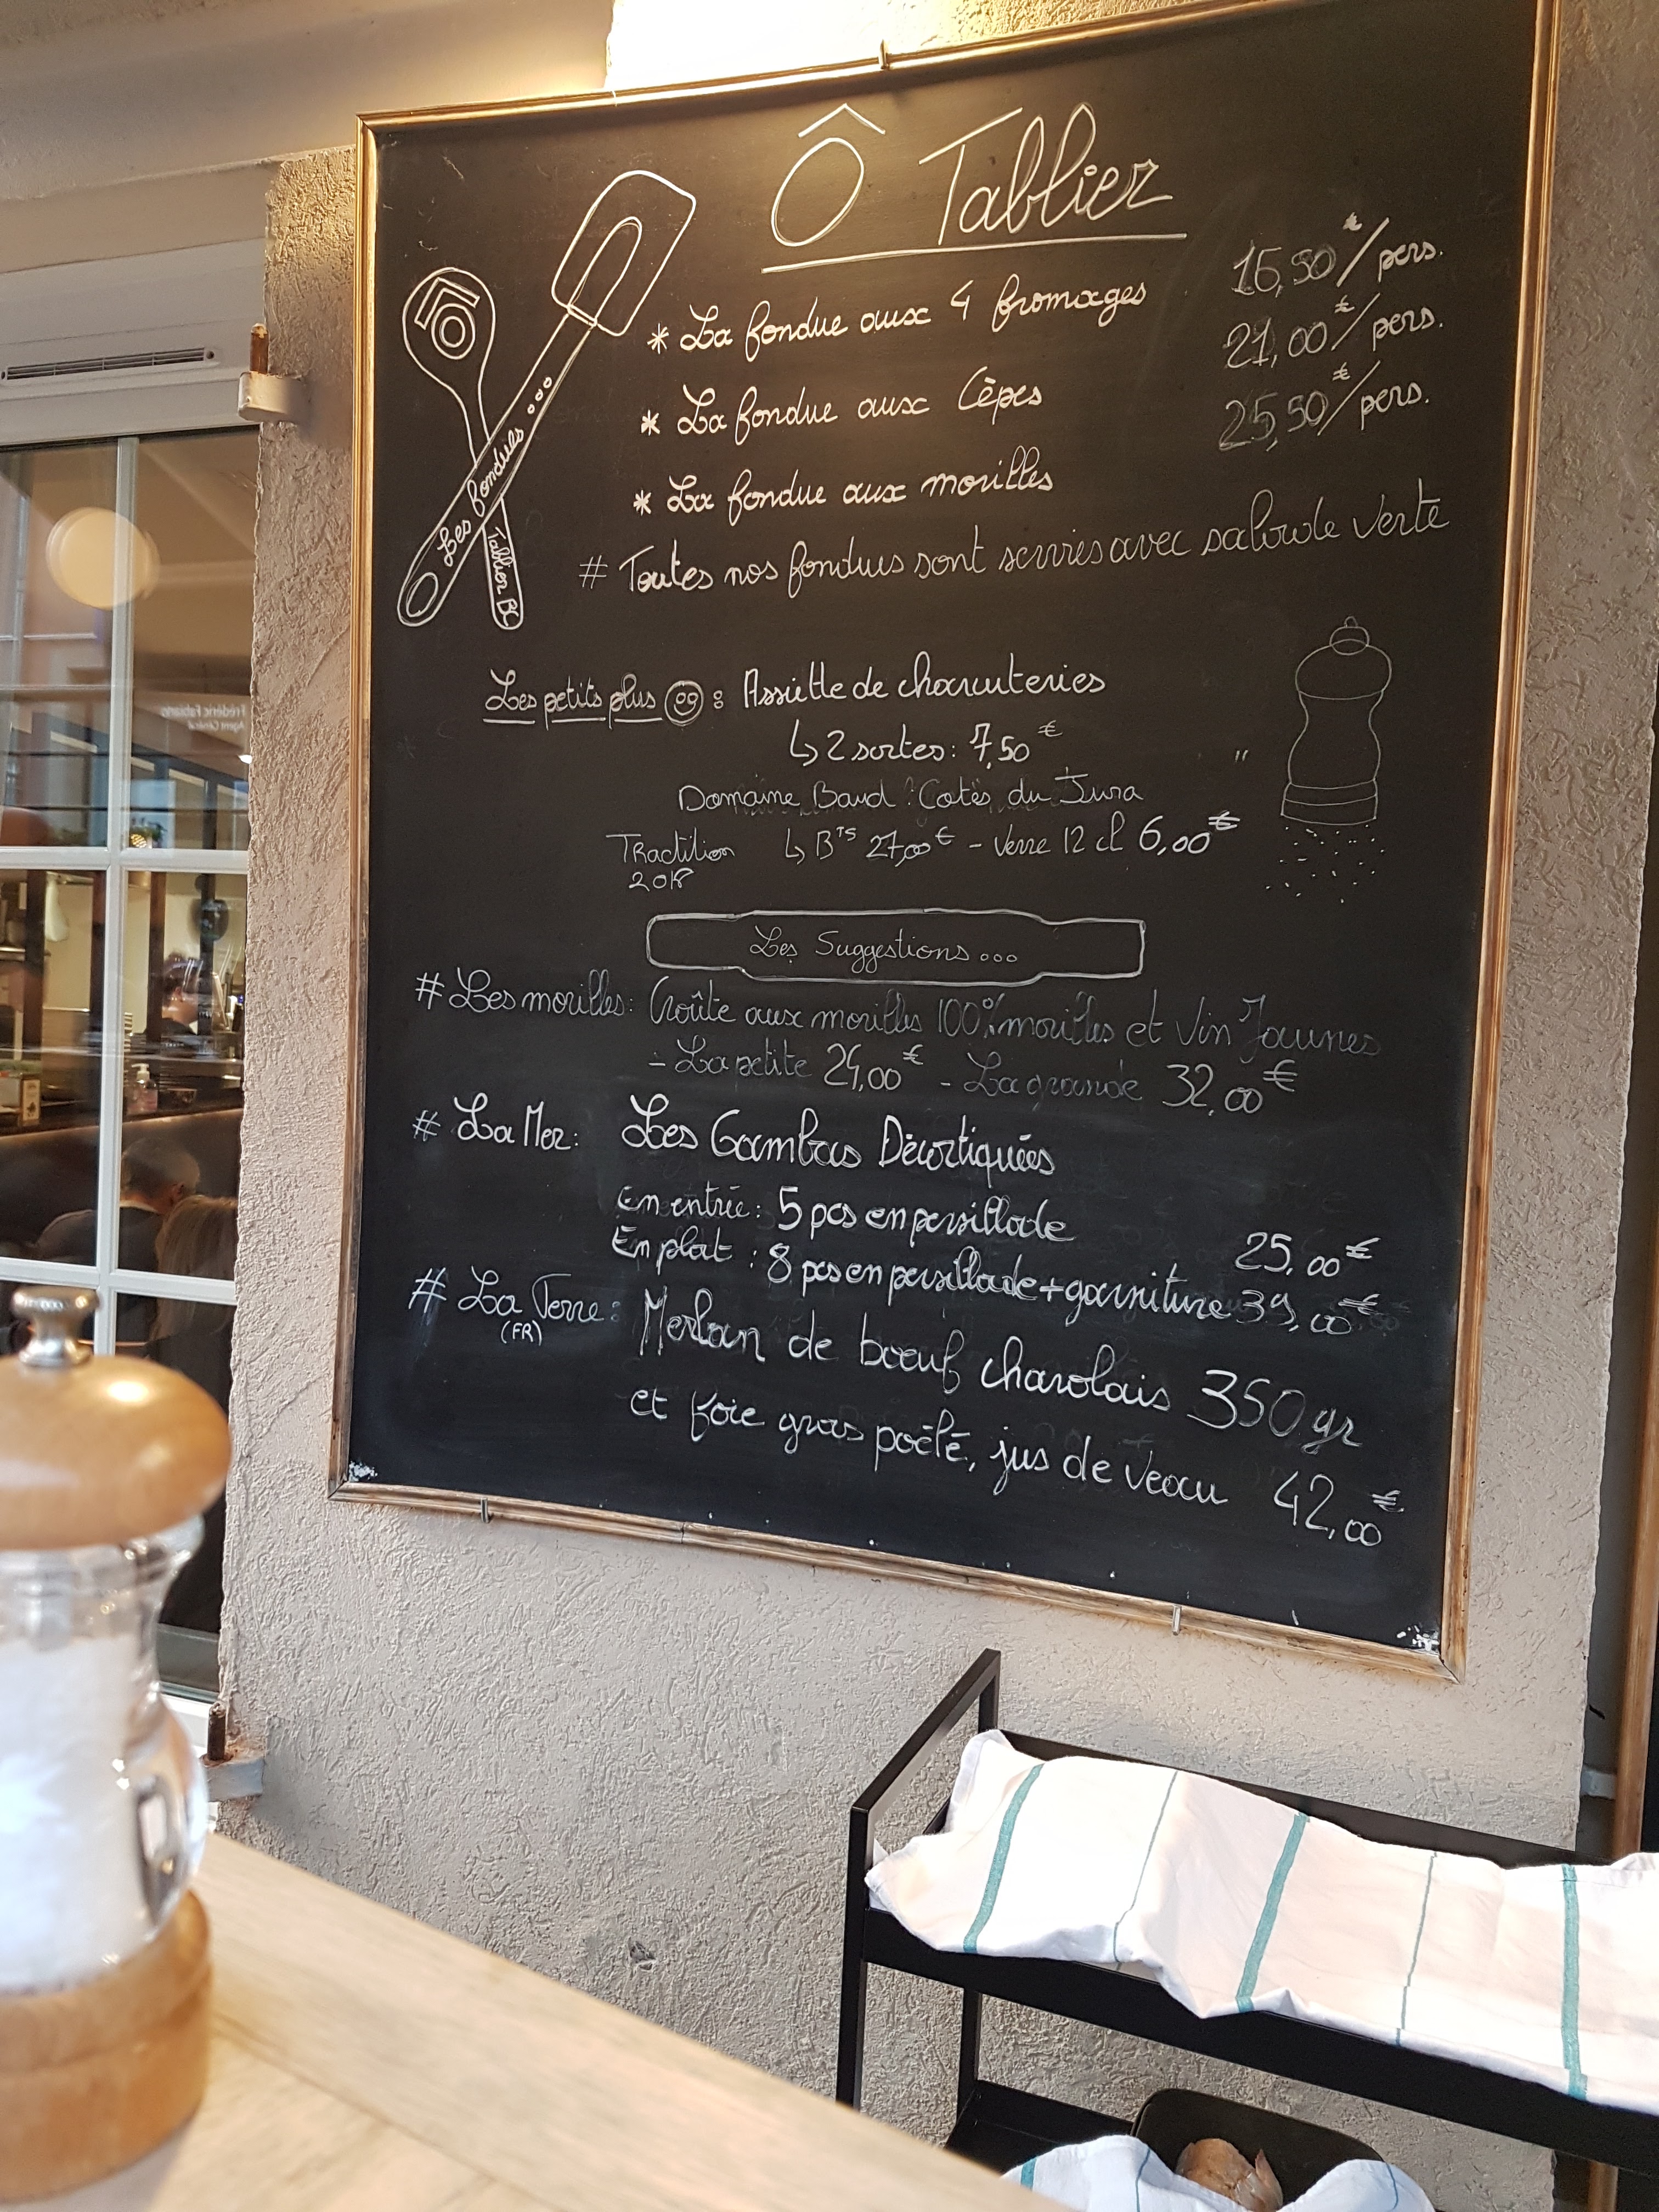 Ô Tablier
* La fondue aux 4 fromages 16,50€/pers.
* La fondue aux Cèpes 21,00€/pers.
* La fondue aux morilles 25,50€/pers.
Les fondues...
Tablier BC
# Toutes nos fondues sont servies avec salade verte
Les petits plus : Assiette de charcuteries
↳ 2 sortes : 7,50€
Domaine Baud : Cotès du Jura
Tradition ↳ Bts 27,00€ - Verre 12 cl 6,00€
2018
Les Suggestions...
# Les morilles : Croûte aux morilles 100% morilles et Vin Jaunes
- La petite 24,00€ - La grande 32,00€
# La Mer : Les Gambas Décortiquées
En entrée : 5 pcs en persillade 25,00€
En plat : 8 pcs en persillade + garniture 39,00€
# La Terre : Merlan de boeuf charolais 350 gr
(FR)
et foie gras poêlé, jus de veau 42,00€
Frédéric Fabiano
Agent Général